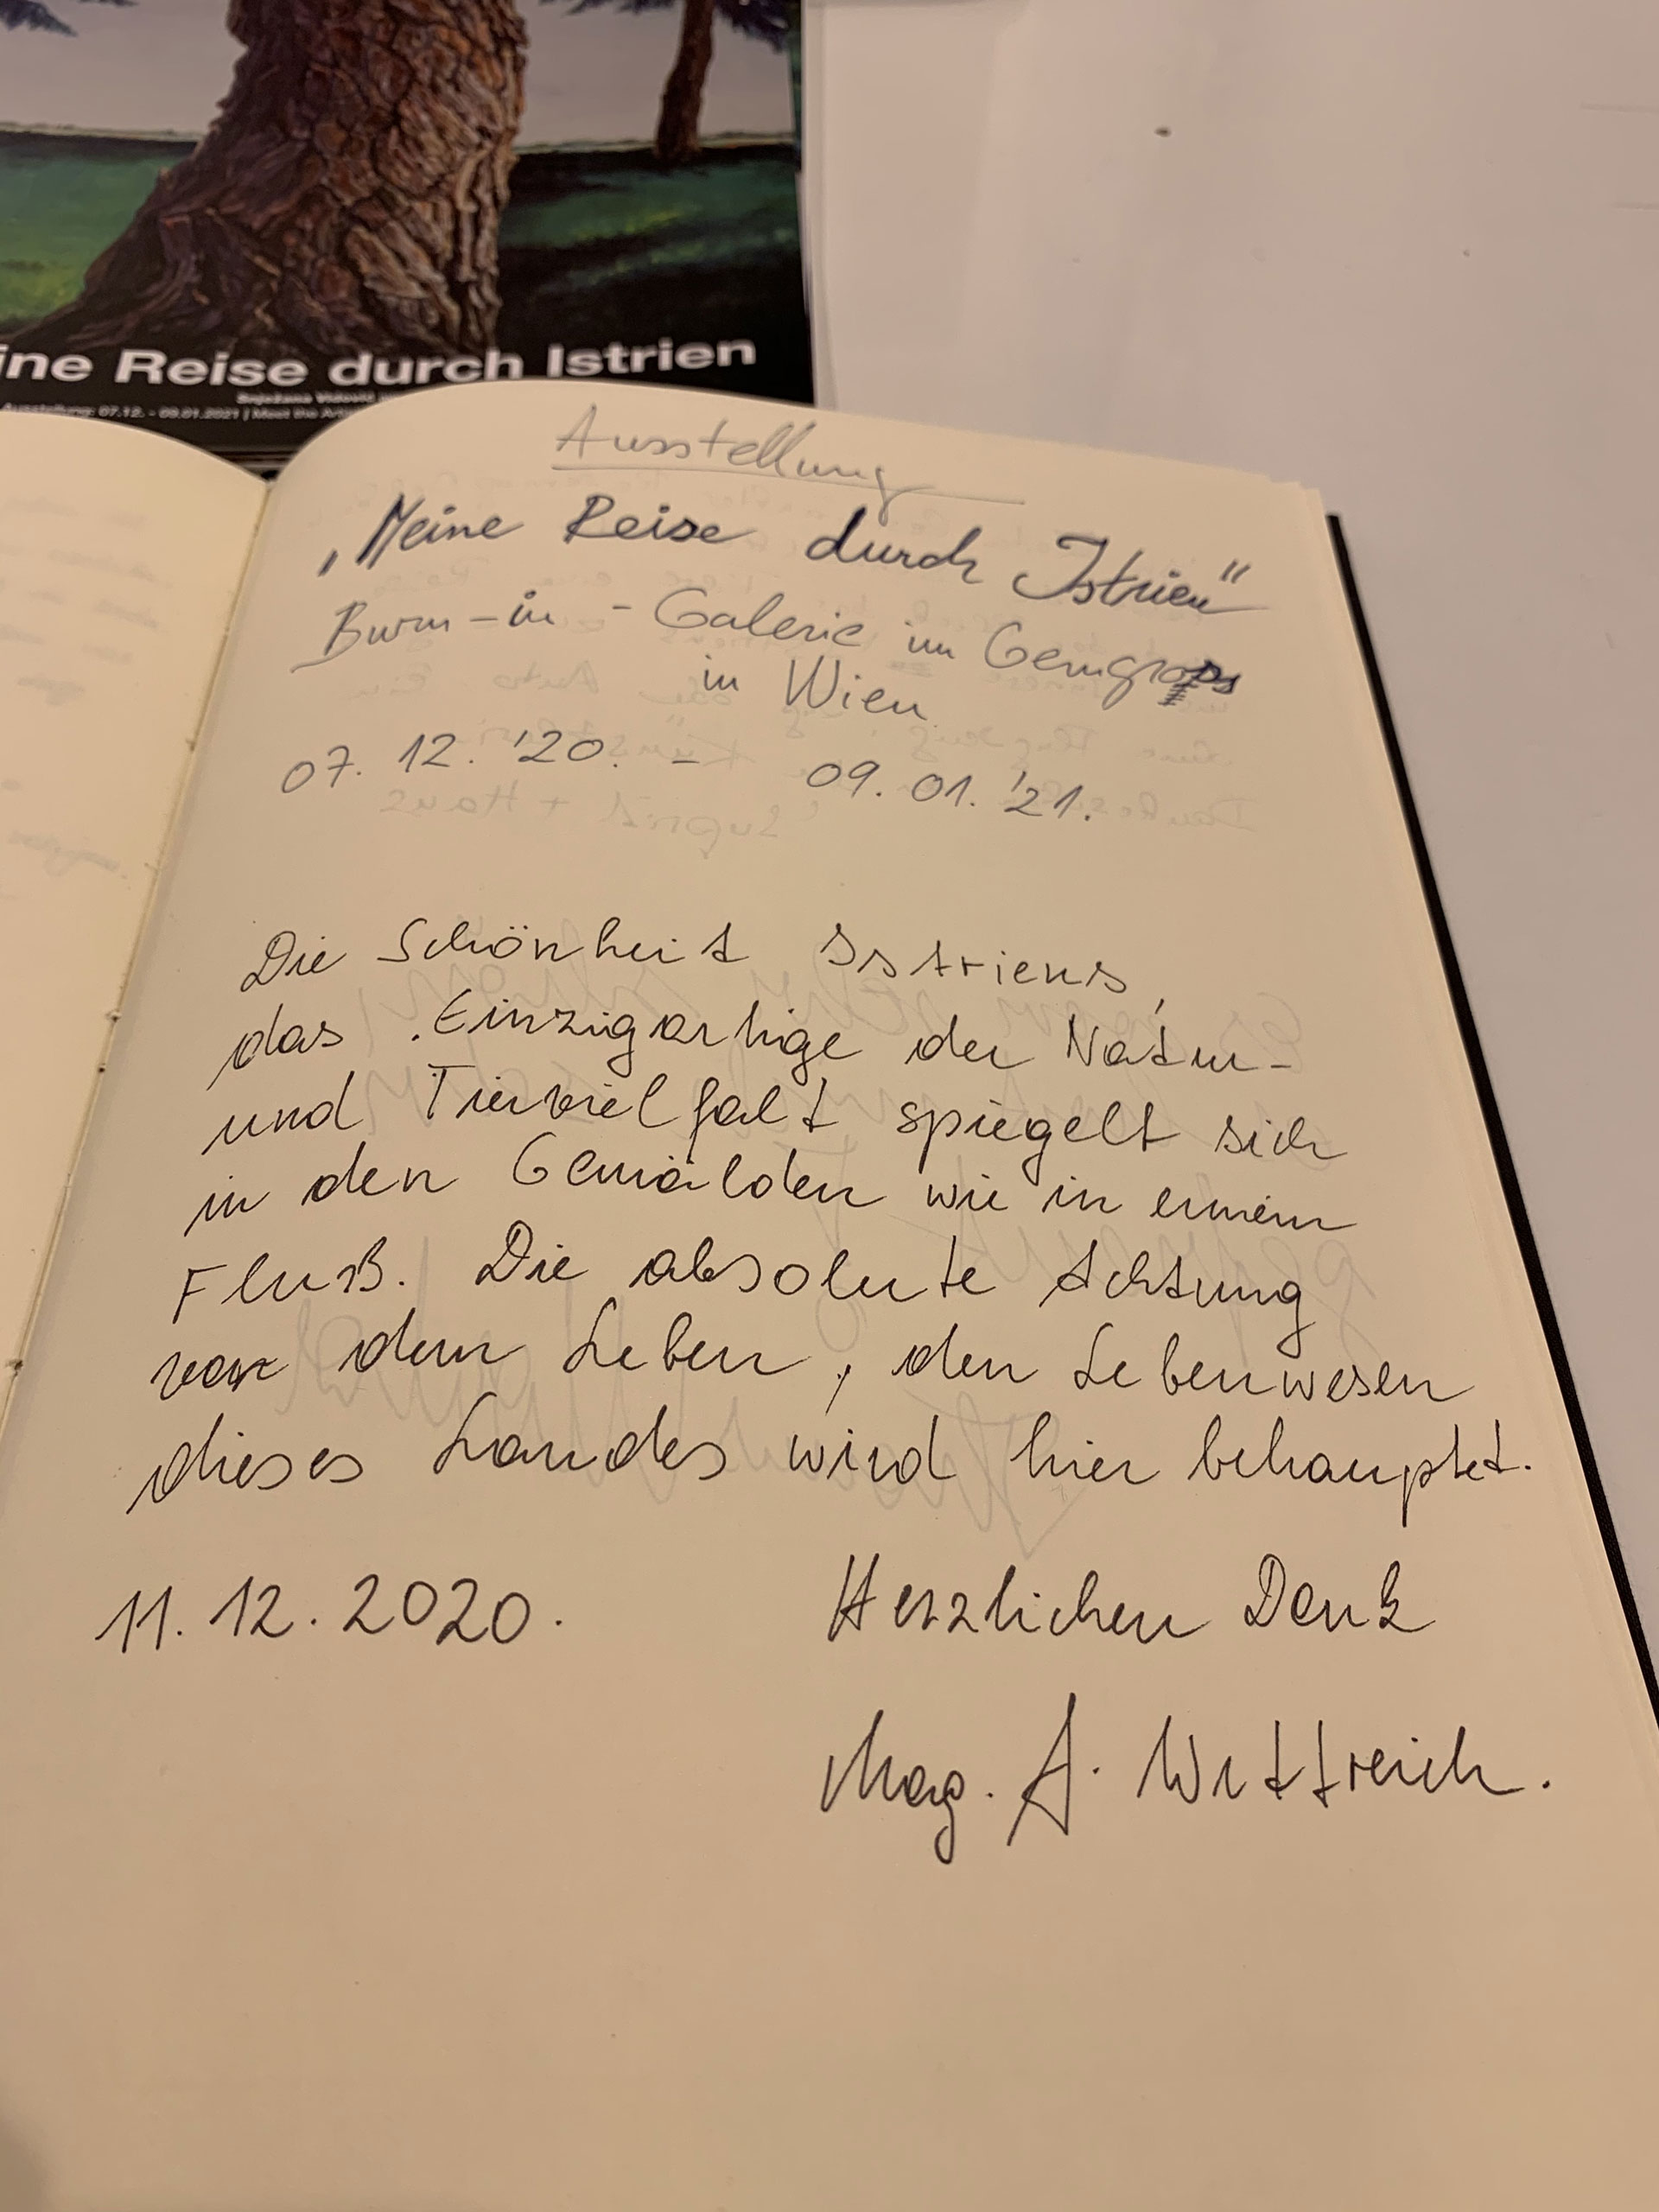 ine Reise durch Istrien
Ausstellung: 07.12. - 09.01.2021 | Meet the
Ausstellung
„Meine Reise durch Istrien"
Burn-in - Galerie im Gerngross
in Wien
07. 12. '20. - 09. 01. '21.
Die Schönheit Istriens,
das Einzigartige der Natur-
und Tiervielfalt spiegelt sich
in den Gemälden wie in einem
Fluß. Die absolute Achtung
vor dem Leben, den Lebenwesen
dieses Landes wird hier behauptet.
11. 12. 2020.
Herzlichen Dank
Mag. A. Wittreich.